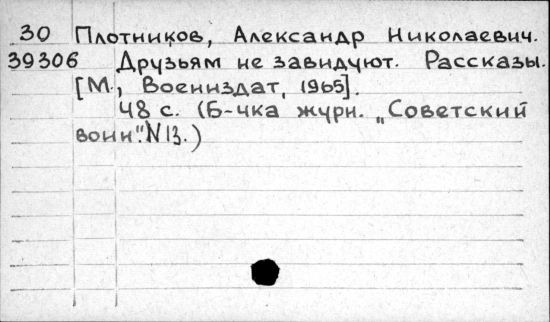 30 Плотников, Александр Николаевич.
39306 Друзьям не завидуют. Рассказы.
[М., Воениздат, 1965].
48 с. (Б-чка журн. „Советский
воин". N 13.)